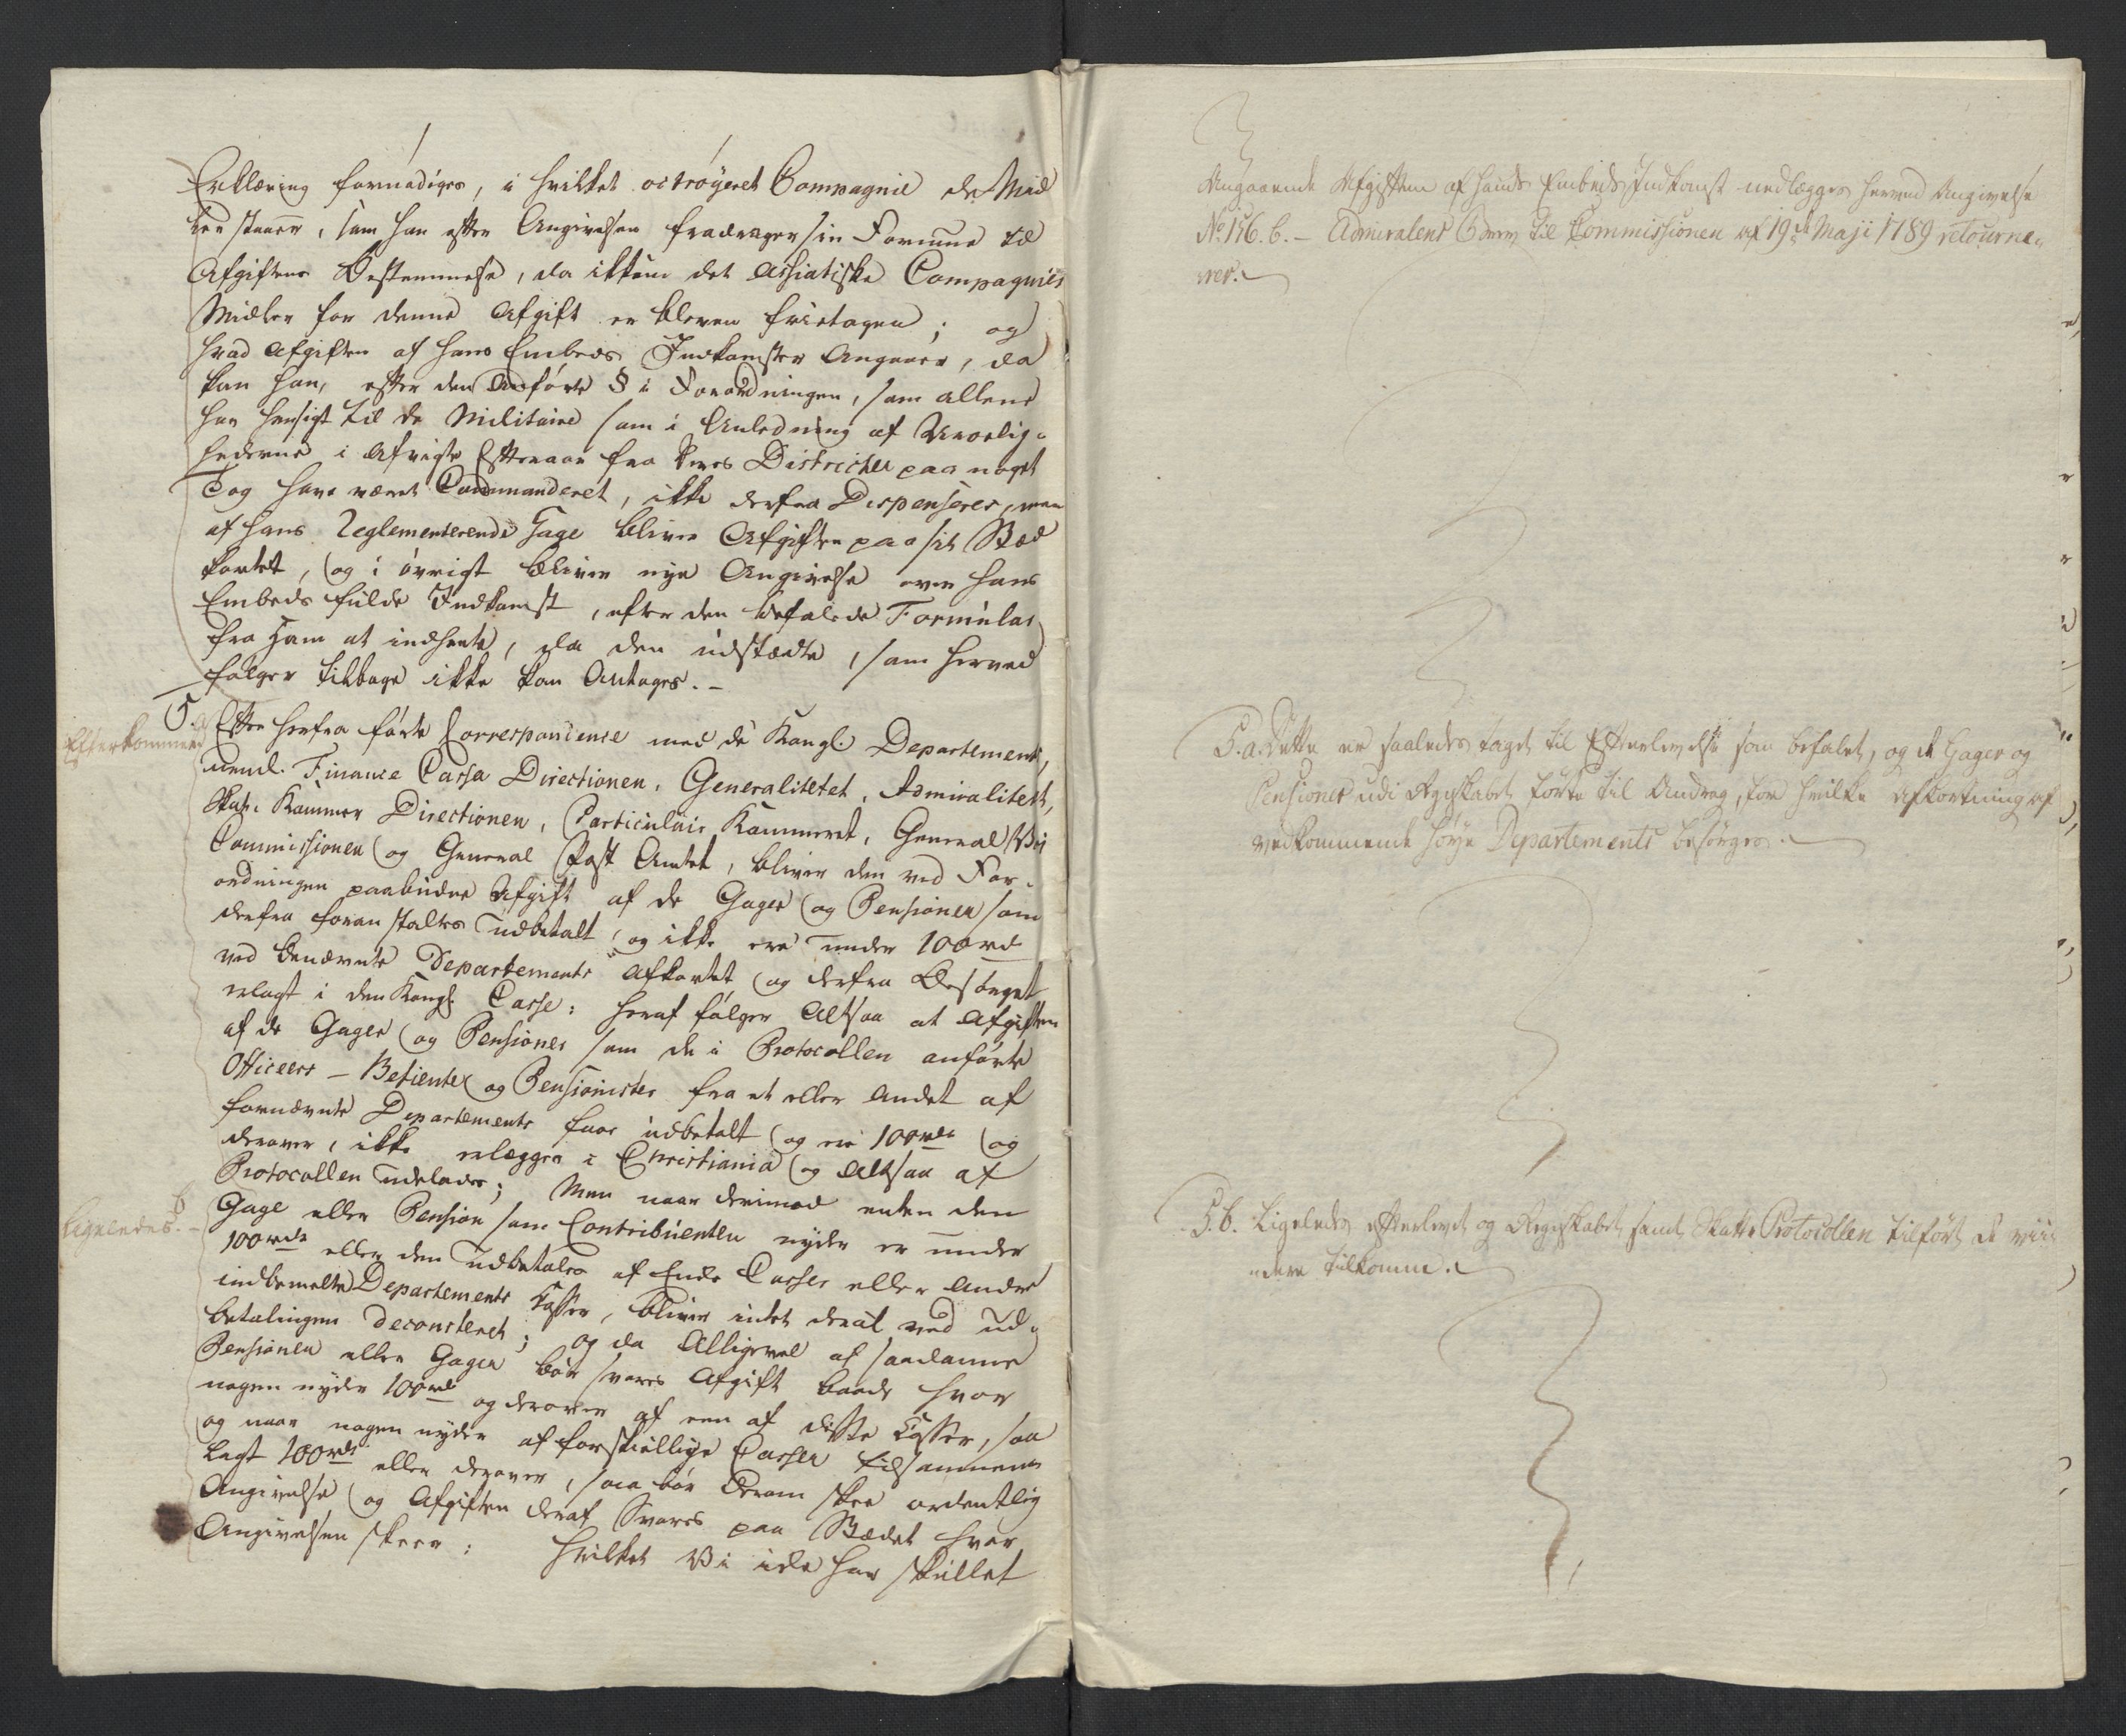 Erklæring fornødiges, i hvilket octrøyeret Compagnie de Mid
ler staaer, som han efter Angivelsen fradrager sin Formue til
Afgiftens Bestemmelse, da ikkun det Assiatiske Compagnies
Midler for denne Afgift er bleven fritagen; og
hvad Afgiften af hans Embeds Indkomster Angaaer, da
kan han, efter den Anførte § i Forordningen, som allene
har hensigt til de Militaire som i Anledning af Uroelig-
hederne i Afvigte Efteraar fra deres Districter paa noget
Tog have været Commanderet, ikke derfra Dispenseres, men
af hans Reglementerende Gage bliver Afgiften paa sit Stæd
kortet, og i øvrigt bliver nye Angivelse over hans
Embeds fulde Indkomst, efter den befalede Formular
fra Ham at indhente, da den udstædte, som herved
følger tilbage ikke kan Antages. -
5. a Efter herfra førte Correspondence med de Kongl. Departementer,
Efterkommed
nemlig Finance Cassa Directionen, Generalitetet, Admiralitetet,
Skat-Kammer Directionen, Particulair Kammeret, General Vei
Commissionen og General Post Amtet, bliver den ved For-
ordningen paabudne Afgift af de Gager og Pensioner som
derfra foranstaltes udbetalt, og ikke ere under 100 rd
ved benævnte Departementer Afkortet og derfra Besørget
erlagt i den Kongl. Casse: heraf følger Altsaa at Afgiften
af de Gager og Pensioner som de i Protocollen anførte
Officeers - Betienter og Pensionister fra et eller Andet af
fornævnte Departementer faae udbetalt og ere 100 rdr og
derover, ikke erlægges i Christiania og Altsaa af
Protocollen udelades; Men naar derimod enten den
b
Ligeledes. -
Gage eller Pension som Contribuenten nyder er under
100 rdr eller den udbetales af Ende Casser eller Andre
indbemelte Departementer Casser, bliver intet deraf ved ud-
betalingen decourteret; og da Alligevel af saadanne
Pensioner eller Gager bør svares Afgift baade hvor
nogen nyder 100 rdr og derover af een af disse Casser, saa
og naar nogen nyder af forskiellige Casser tilsammen
lagt 100 rdr eller derover, saa bør derom skee ordentlig
Angivelse og Afgiften deraf Svares paa Stædet hvor
Angivelsen skeer: hvilket Vi ikke har skullet
Angaaende Afgiften af hands Embeds Indkomst nedlægges herved Angivelse
No. 156. b. - Admiralens til Commissionen af 19de Maji 1789 retourne-
res.
5. a. Dette er saaledes taget til Efterlevelse som befalet, og de Gager og
Pensioner udi Regnskabet førte til Andrag, for hvilke Afkortning af
vedkommende høye Departements besørges.
5. b. Ligeledes efterlevet og Regnskabet samt Skatte Protocollen tilført de
videre tilkomne.